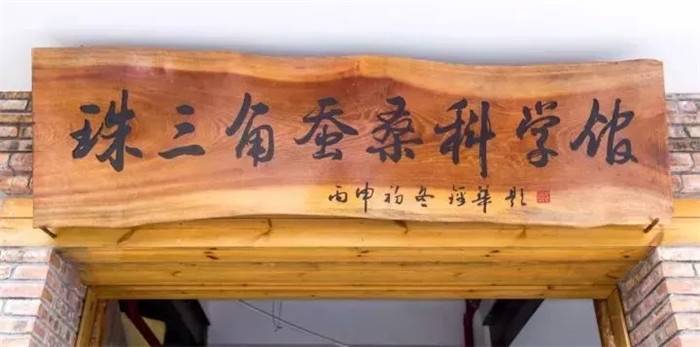 珠三角蚕桑科学馆
丙申初冬 锦华 题